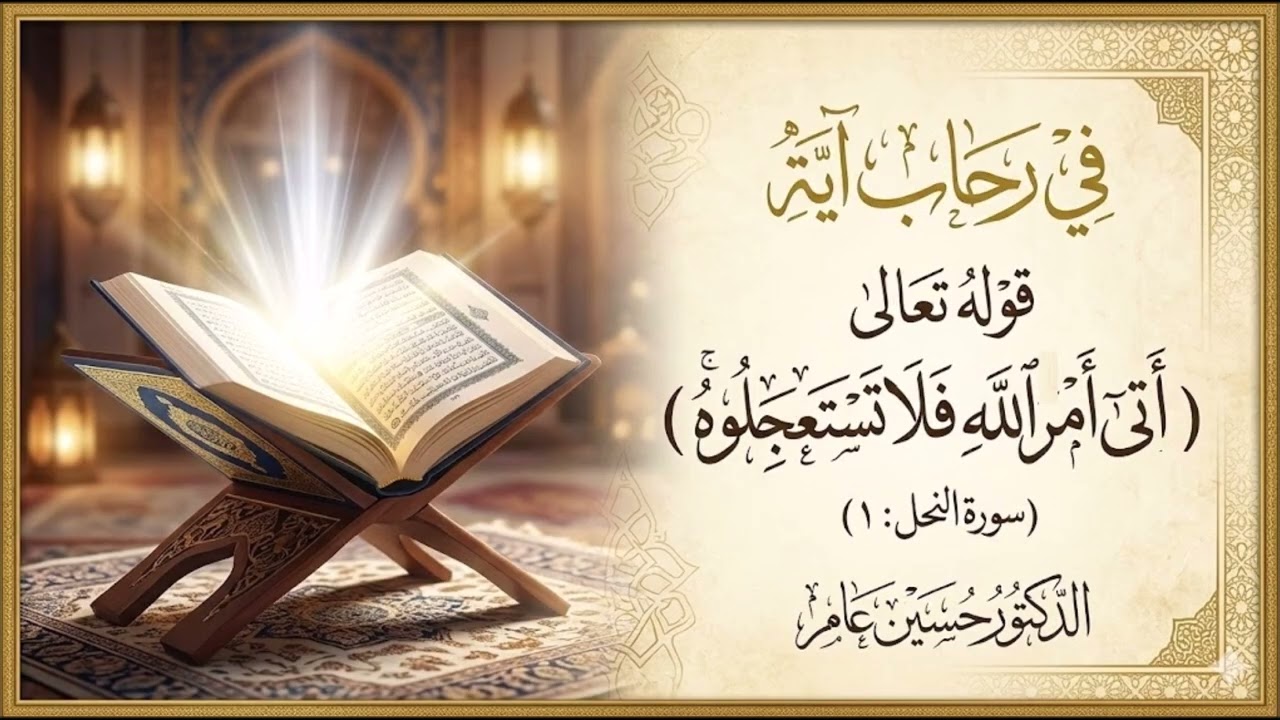 فِيْ رِحَابِ آيَةٍ
قَوْلُهُ تَعَالَىٰ
( أَتَىٰٓ أَمْرُ ٱللَّهِ فَلَا تَسْتَعْجِلُوهُۚ )
(سورة النحل: ١)
الدّكتُورُ حُسَيْن عَامِر